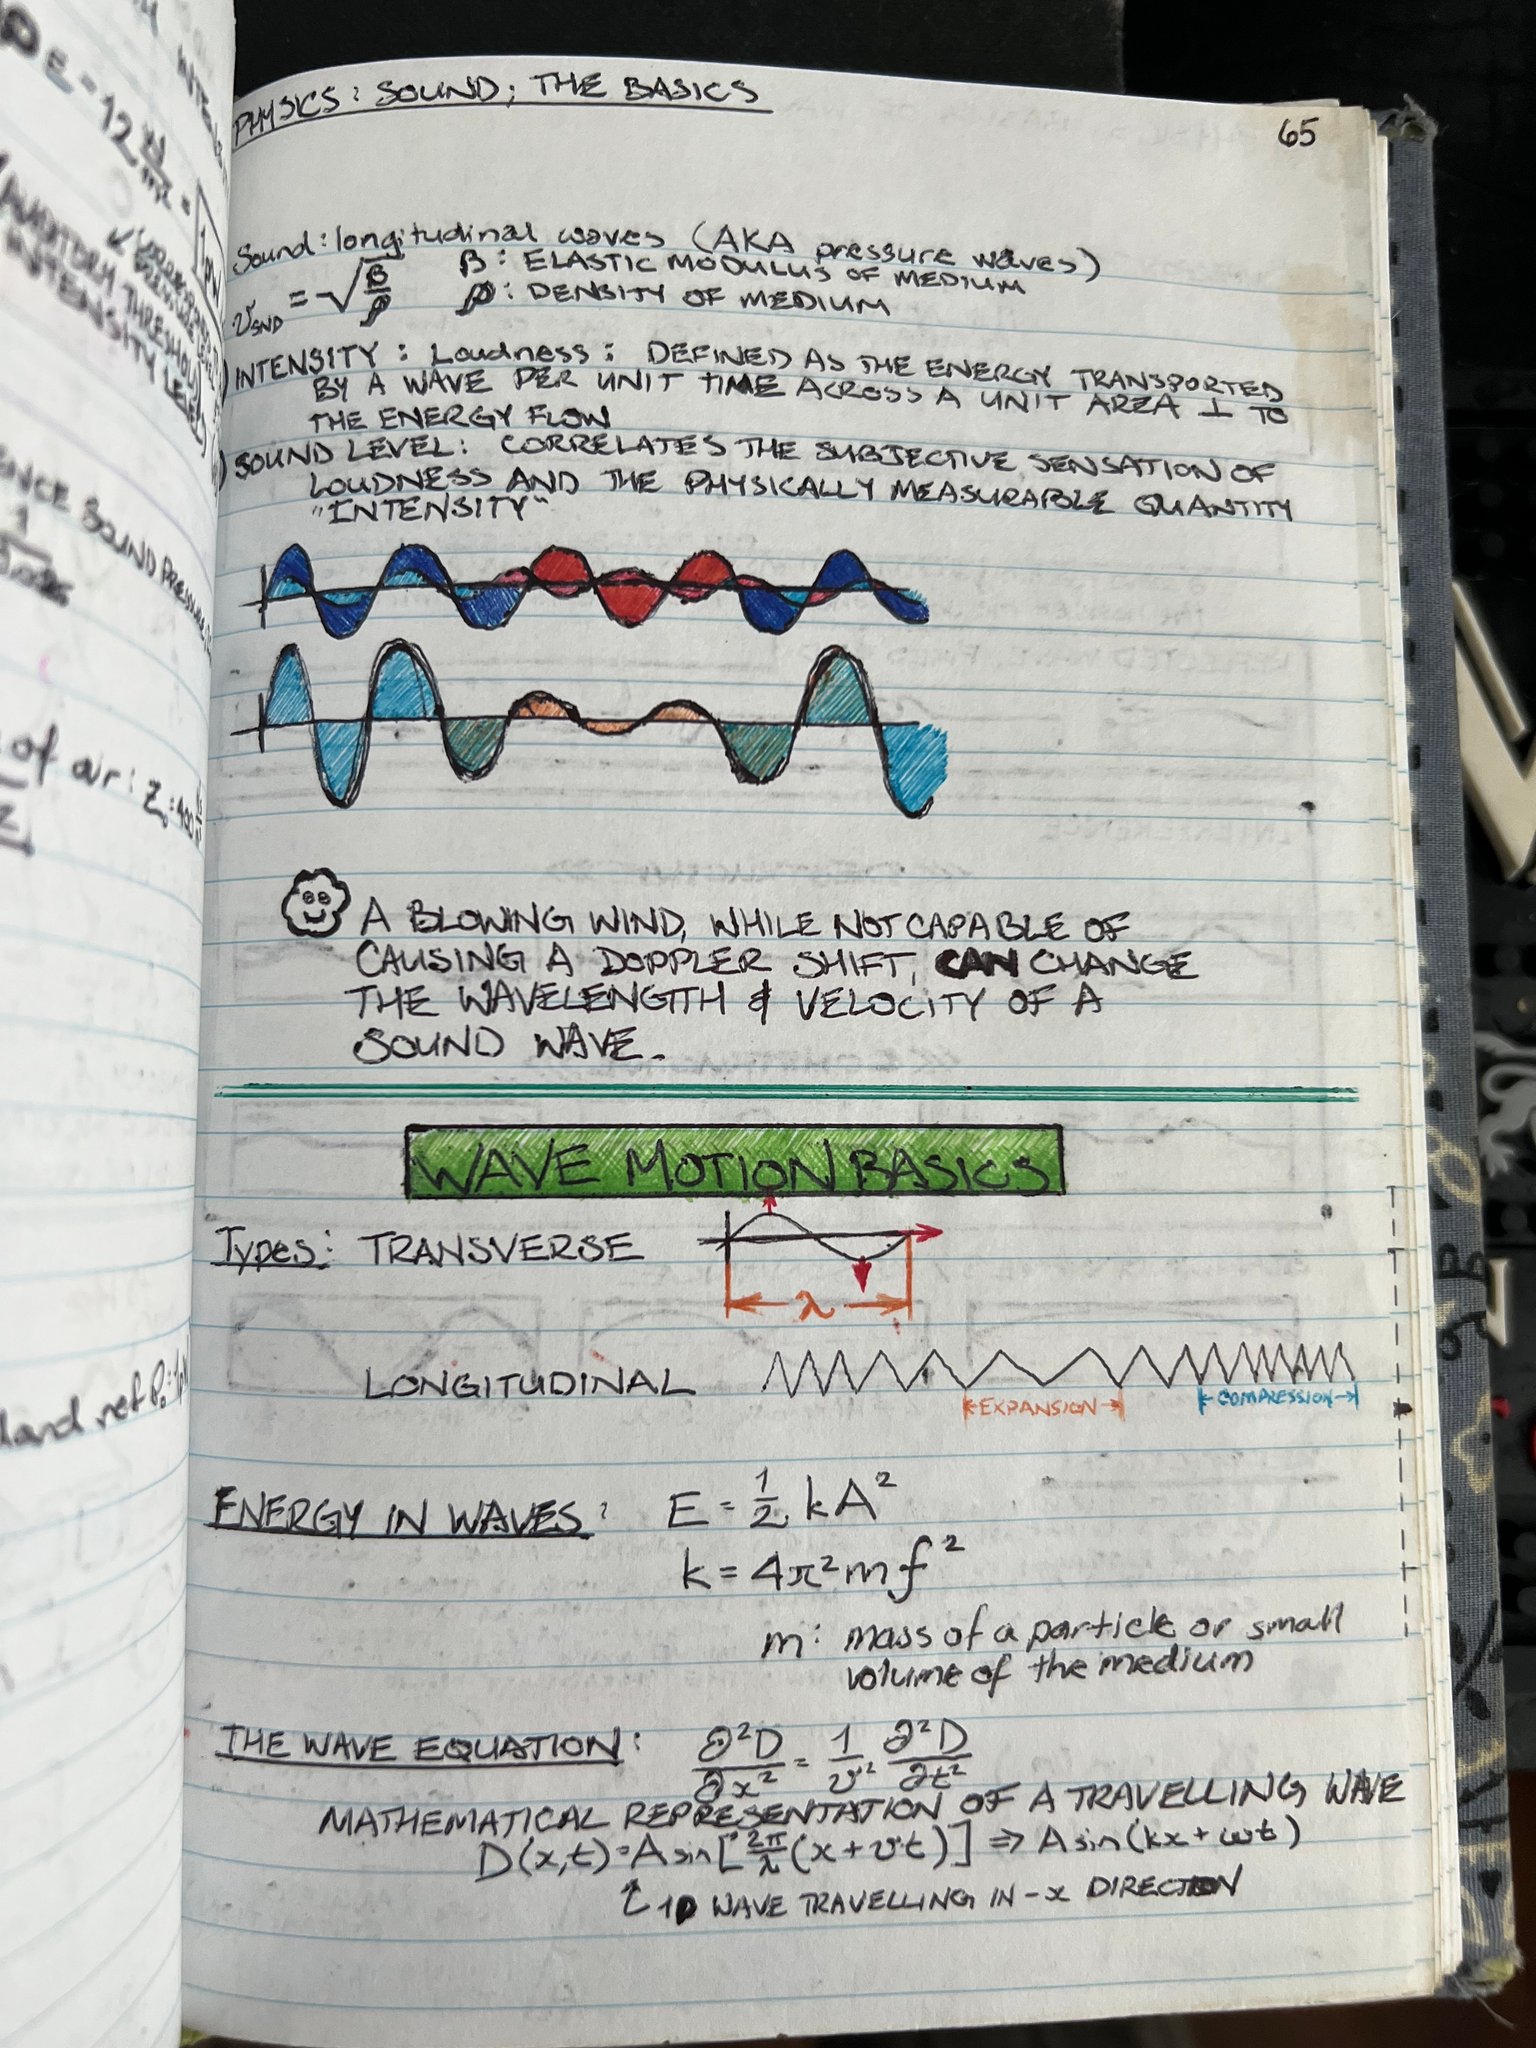 PHYSICS: SOUND; THE BASICS
65
Sound: longitudinal waves (AKA pressure waves)
v_SND = √(B/ρ) B: ELASTIC MODULUS OF MEDIUM
ρ: DENSITY OF MEDIUM
INTENSITY: Loudness: DEFINED AS THE ENERGY TRANSPORTED
BY A WAVE PER UNIT TIME ACROSS A UNIT AREA ⊥ TO
THE ENERGY FLOW
SOUND LEVEL: CORRELATES THE SUBJECTIVE SENSATION OF
LOUDNESS AND THE PHYSICALLY MEASURABLE QUANTITY
"INTENSITY"
A BLOWING WIND, WHILE NOT CAPABLE OF
CAUSING A DOPPLER SHIFT, CAN CHANGE
THE WAVELENGTH & VELOCITY OF A
SOUND WAVE.
WAVE MOTION BASICS
Types: TRANSVERSE
λ
LONGITUDINAL
EXPANSION COMPRESSION
ENERGY IN WAVES: E = 1/2 kA²
k = 4π²mf²
m: mass of a particle or small
volume of the medium
THE WAVE EQUATION: ∂²D/∂x² = 1/v² ∂²D/∂t²
MATHEMATICAL REPRESENTATION OF A TRAVELLING WAVE
D(x,t) = A sin[2π/λ(x+vt)] ⇒ A sin(kx+ωt)
↑ 1D WAVE TRAVELLING IN -x DIRECTION
THRESHOLD
INTENSITY LEVEL
SOUND
of air: Z₀